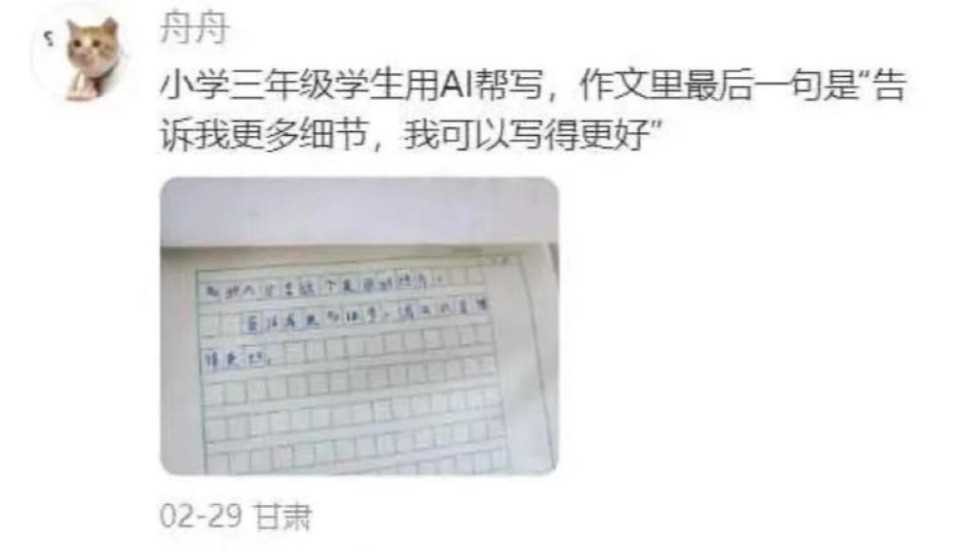 舟舟
小学三年级学生用AI帮写，作文里最后一句是“告
诉我更多细节，我可以写得更好”
告诉我更多细节，我可以写
得更好。
02-29 甘肃